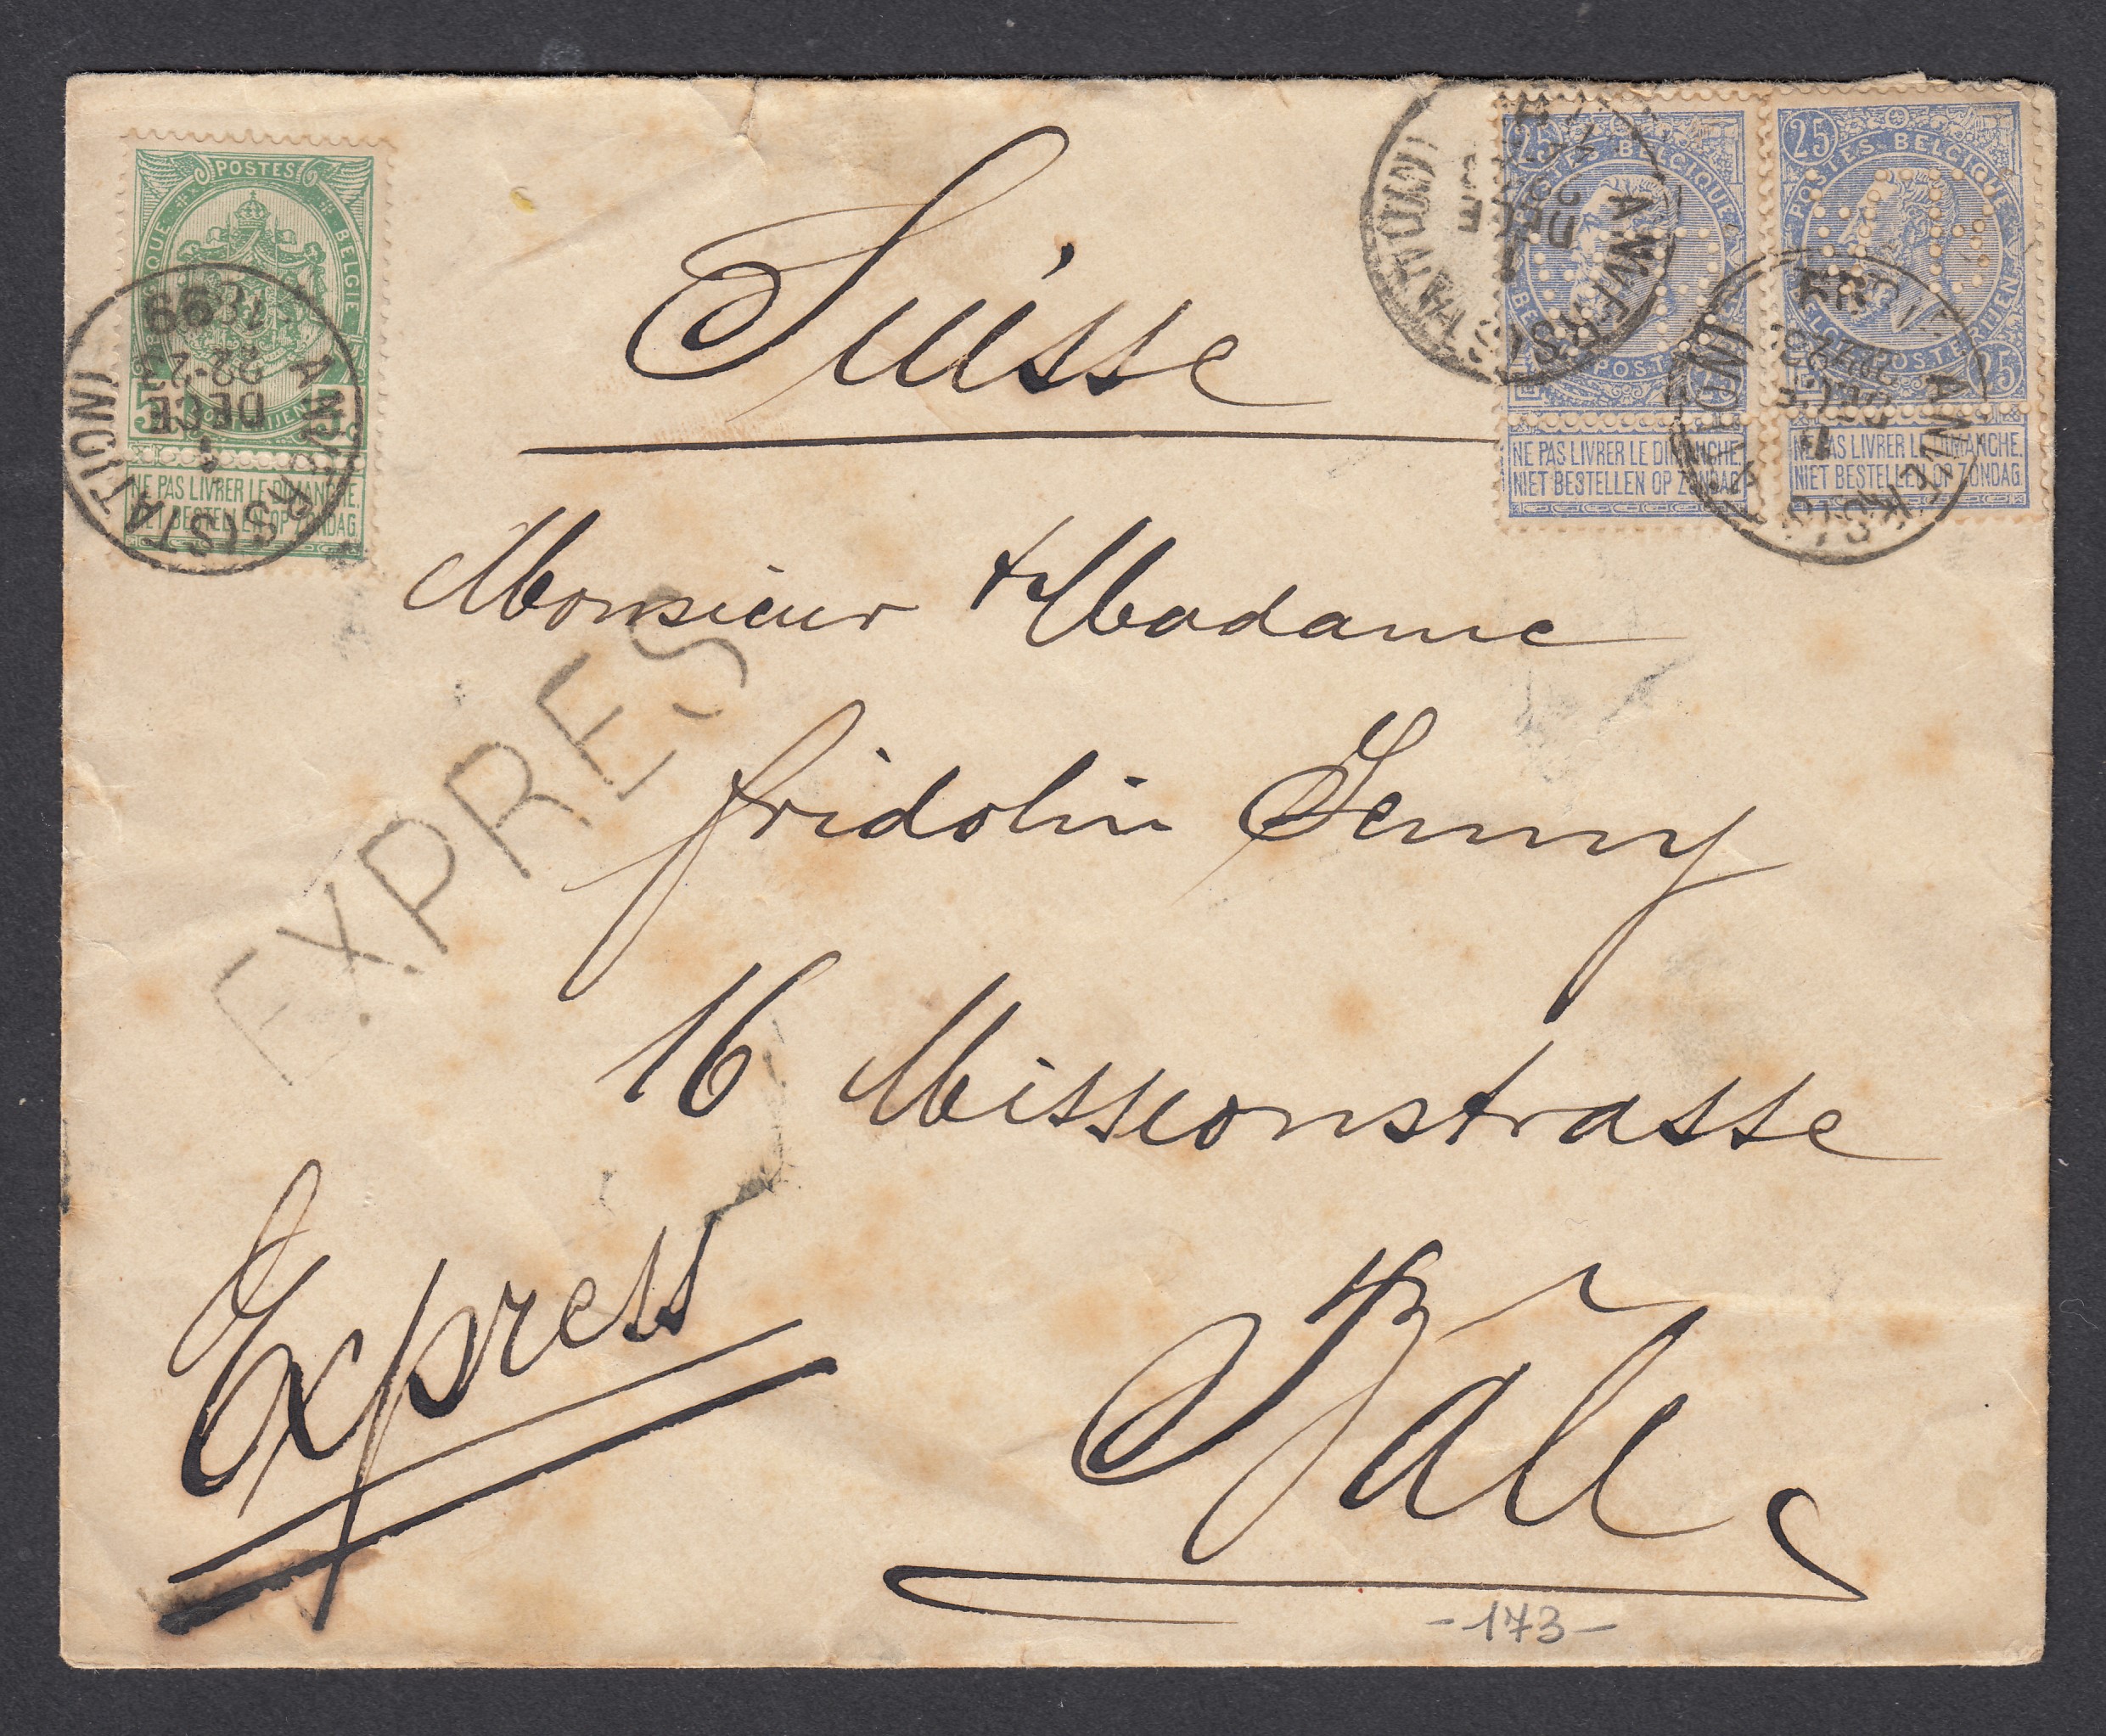 POSTES
BELGIQUE
BELGIE
5
NE PAS LIVRER LE DIMANCHE.
NIET BESTELLEN OP ZONDAG.
ANVERS (STATION)
1 DECE
22-23
1899
25
POSTES BELGIQUE
BELGIE POSTERIJEN
25
NE PAS LIVRER LE DIMANCHE.
NIET BESTELLEN OP ZONDAG.
ANVERS (STATION)
1 DECE
25
POSTES. BELGIQUE
BELGIE POSTERIJEN
25
NE PAS LIVRER LE DIMANCHE.
NIET BESTELLEN OP ZONDAG.
ANVERS
1 DECE
Suisse
Monsieur & Madame
fridolin Jenny
16 Missionstrasse
Bâle
EXPRES
Express
-173-